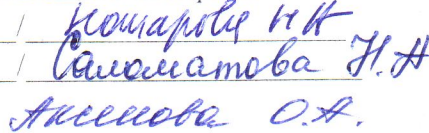 Комарова Н К
Саломатова Н.А
Аксенова О.А.